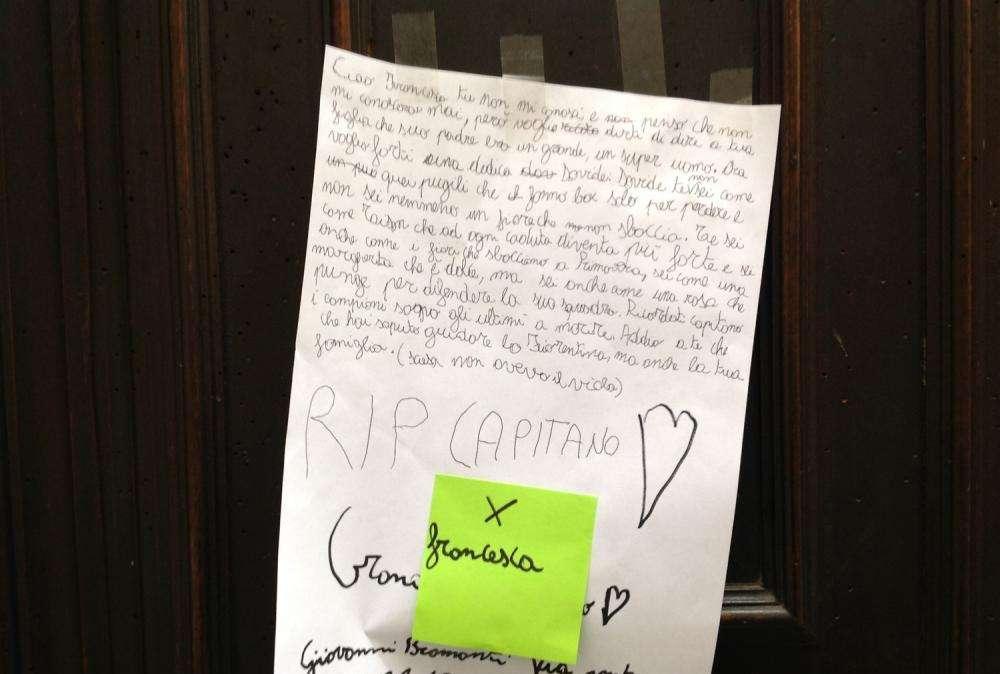 Ciao Francesca tu non mi conosci e non penso che non
mi conoscerai mai, però voglio dirti di dire a tua
figlia che suo padre era un grande, un super uomo. Ora
voglio farti una dedica Davide: Davide tu non sei come
un può quei pugili che si fanno box solo per perdere e
non sei nemmeno un fiore che non sboccia. Te sei
come Taison che ad ogni caduta diventa più forte e sei
anche come i fiori che sbocciano a Primavera, sei come una
margherita che è dolce, ma sei anche ame una rosa che
punge per difendere la sua squadra. Ricordati capitano
i campioni sogno gli ultimi a morire. Addio a te che
che hai saputo guidare la Fiorentina, ma anche la tua
famiglia. (scusa non avevo il viola)
RIP CAPITANO
X
francesca
Giovanni